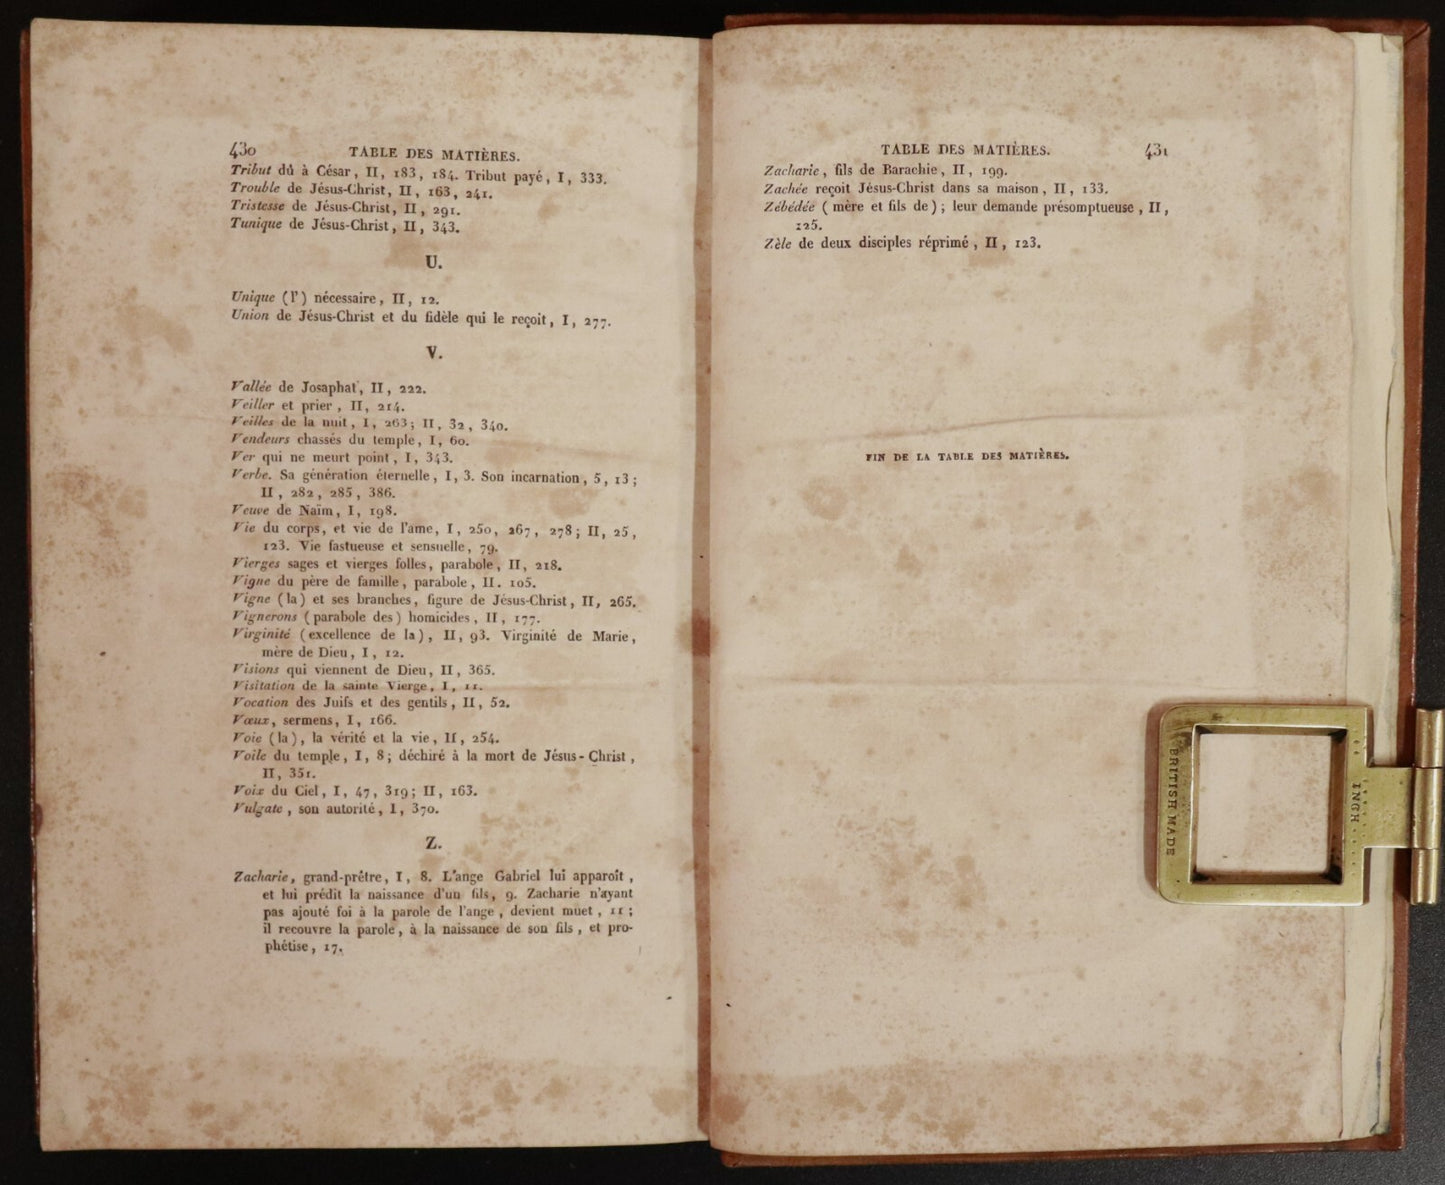 430 TABLE DES MATIÈRES.
Tribut dû à César, II, 183, 184. Tribut payé, I, 333.
Trouble de Jésus-Christ, II, 163, 241.
Tristesse de Jésus-Christ, II, 291.
Tunique de Jésus-Christ, II, 343.
U.
Unique (l') nécessaire, II, 12.
Union de Jésus-Christ et du fidèle qui le reçoit, I, 277.
V.
Vallée de Josaphat, II, 222.
Veiller et prier, II, 214.
Veilles de la nuit, I, 263; II, 32, 340.
Vendeurs chassés du temple, I, 60.
Ver qui ne meurt point, I, 343.
Verbe. Sa génération éternelle, I, 3. Son incarnation, 5, 13;
II, 282, 285, 386.
Veuve de Naïm, I, 198.
Vie du corps, et vie de l'ame, I, 250, 267, 278; II, 25,
123. Vie fastueuse et sensuelle, 79.
Vierges sages et vierges folles, parabole, II, 218.
Vigne du père de famille, parabole, II. 105.
Vigne (la) et ses branches, figure de Jésus-Christ, II, 265.
Vignerons (parabole des) homicides, II, 177.
Virginité (excellence de la), II, 93. Virginité de Marie,
mère de Dieu, I, 12.
Visions qui viennent de Dieu, II, 365.
Visitation de la sainte Vierge, I, 11.
Vocation des Juifs et des gentils, II, 52.
Vœux, sermens, I, 166.
Voie (la), la vérité et la vie, II, 254.
Voile du temple, I, 8; déchiré à la mort de Jésus-Christ,
II, 351.
Voix du Ciel, I, 47, 319; II, 163.
Vulgate, son autorité, I, 370.
Z.
Zacharie, grand-prêtre, I, 8. L'ange Gabriel lui apparoît,
et lui prédit la naissance d'un fils, 9. Zacharie n'ayant
pas ajouté foi à la parole de l'ange, devient muet, 11;
il recouvre la parole, à la naissance de son fils, et pro-
phétise, 17.
TABLE DES MATIÈRES. 431
Zacharie, fils de Barachie, II, 199.
Zachée reçoit Jésus-Christ dans sa maison, II, 133.
Zébédée (mère et fils de); leur demande présomptueuse, II,
125.
Zèle de deux disciples réprimé, II, 123.
FIN DE LA TABLE DES MATIÈRES.
BRITISH MADE
INCH